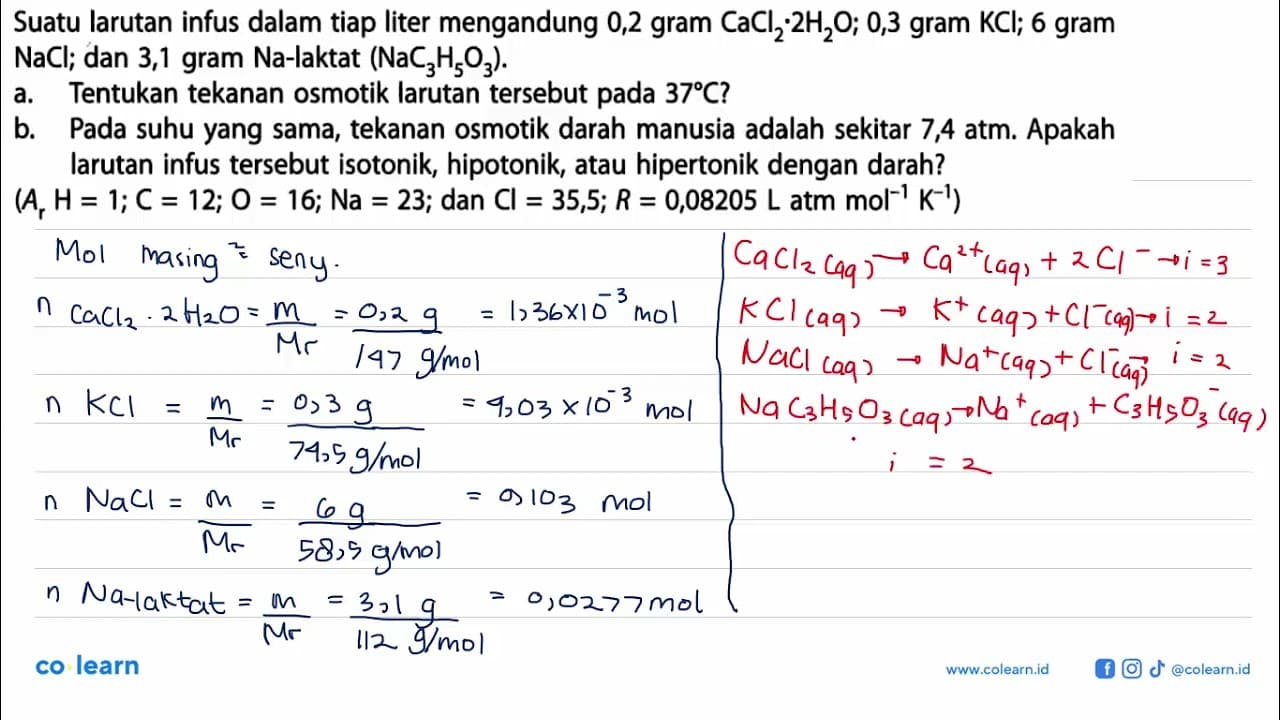 Suatu larutan infus dalam tiap liter mengandung 0,2 gram CaCl₂·2H₂O; 0,3 gram KCl; 6 gram
NaCl; dan 3,1 gram Na-laktat (NaC₃H₅O₃).
a. Tentukan tekanan osmotik larutan tersebut pada 37°C?
b. Pada suhu yang sama, tekanan osmotik darah manusia adalah sekitar 7,4 atm. Apakah
larutan infus tersebut isotonik, hipotonik, atau hipertonik dengan darah?
(Aᵣ H = 1; C = 12; O = 16; Na = 23; dan Cl = 35,5; R = 0,08205 L atm mol⁻¹ K⁻¹)
Mol masing² = seny.
n CaCl₂ . 2H₂O = m/Mr = 0,2 g/147 g/mol = 1,36 x 10⁻³ mol
n KCl = m/Mr = 0,3 g/74,5 g/mol = 4,03 x 10⁻³ mol
n NaCl = m/Mr = 6 g/58,5 g/mol = 0,103 mol
n Na-laktat = m/Mr = 3,1 g/112 g/mol = 0,0277 mol
CaCl₂ (aq) → Ca²⁺ (aq) + 2 Cl⁻ → i = 3
KCl (aq) → K⁺ (aq) + Cl⁻ (aq) → i = 2
NaCl (aq) → Na⁺ (aq) + Cl⁻ (aq) → i = 2
NaC₃H₅O₃ (aq) → Na⁺ (aq) + C₃H₅O₃⁻ (aq)
i = 2
co learn
www.colearn.id
@colearn.id